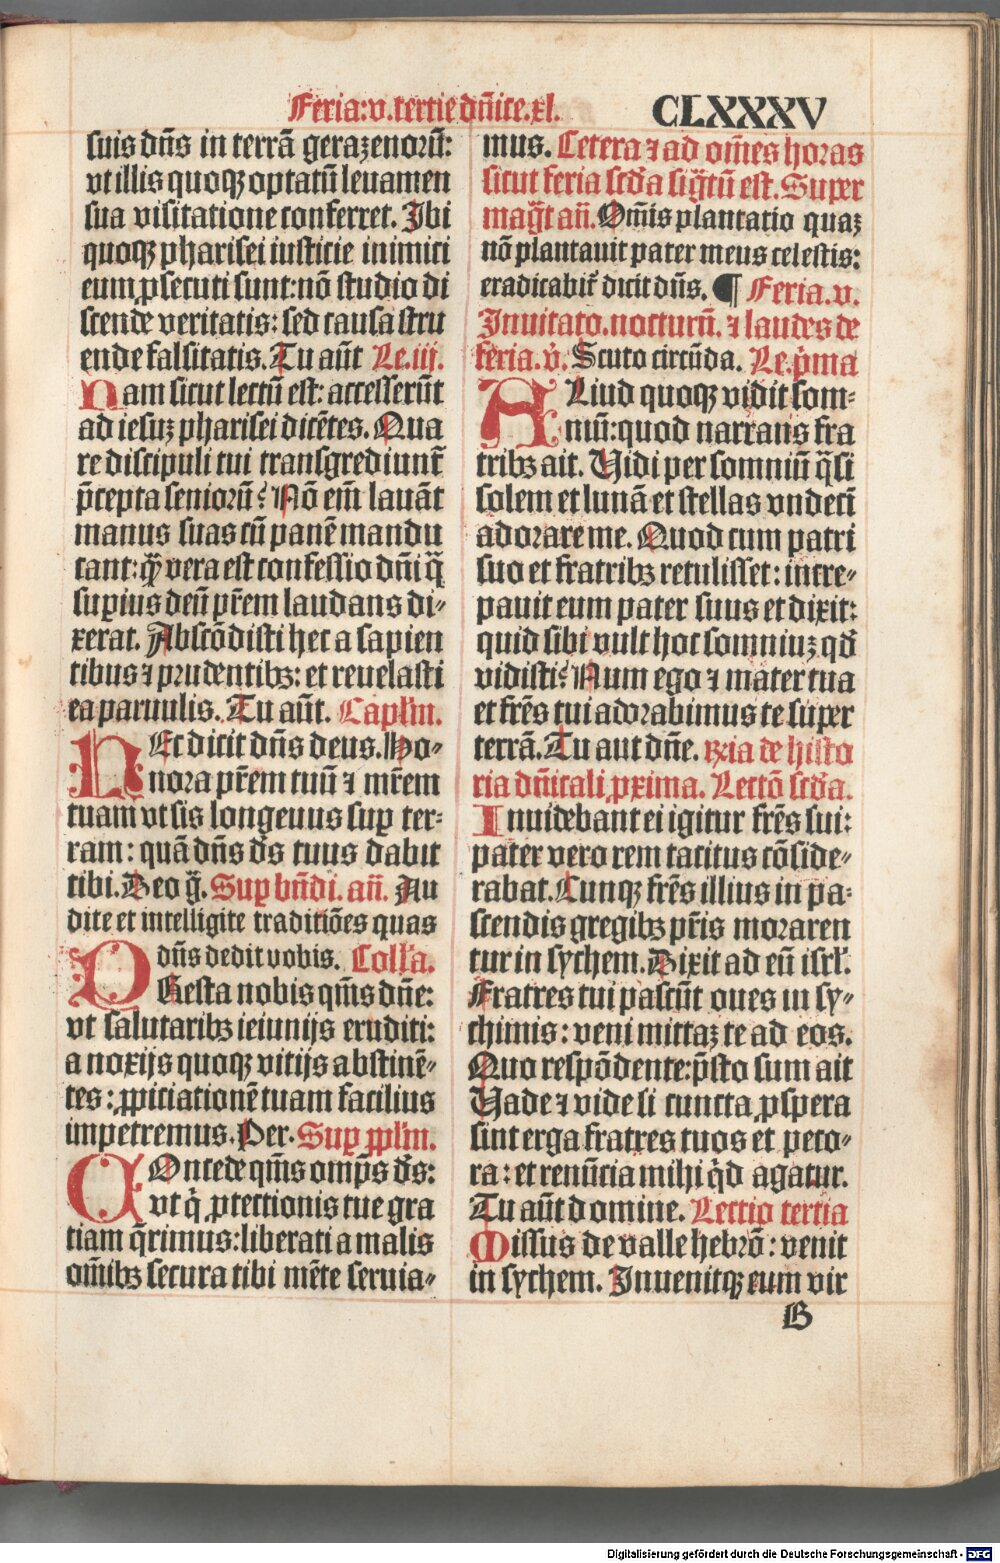 Feria:v. tertie dn̄ice.xl. CLXXXV
suis dn̄s in terrā gerazenorū:
vt illis quoqꝫ optatū leuamen
sua visitatione conferret. Ibi
quoqꝫ pharisei iusticie inimici
eum ꝑsecuti sunt:nō studio di
scende veritatis: sed causa stru
ende falsitatis.Tu aūt Le.iii.
Nam sicut lectū est: accesserūt
ad iesuꝫ pharisei dicētes. Qua
re discipuli tui transgrediunt᷑
p̄cepta seniorū? Nō em̄ lauāt
manus suas cū panē mandu
cant: qꝫ vera est confessio dn̄i q̄
suꝑius deū pr̄em laudans di-
xerat. Abscōdisti hec a sapien
tibus ⁊ prudentibꝫ: et reuelasti
ea paruulis. Tu aūt. Capl'm.
HEc dicit dn̄s deus.Ho-
nora pr̄em tuū ⁊ mr̄em
tuam vt sis longeuus suꝑ ter-
ram: quā dn̄s d's tuus dabit
tibi.Deo g̃. Suꝑ bn̄di. an̄. Au
dite et intelligite traditiōes quas
dn̄s dedit vobis. Coll'a.
PResta nobis qm̄s dn̄e:
vt salutaribꝫ ieiunijs eruditi:
a noxijs quoqꝫ vitijs abstinē-
tes: ꝓpiciationē tuam facilius
impetremus. Per. Suꝑ ꝓpl'm.
COncede qm̄s omp̄s d's:
vt q̇ ꝓtectionis tue gra
tiam q̄rimus:liberati a malis
om̄ibꝫ secura tibi mēte seruia-
mus. Cetera ⁊ ad om̄es horas
sicut feria scd'a sig̃tū est. Super
mag̃t an̄. Om̄is plantatio quaꝫ
nō plantauit pater meus celestis:
eradicabit᷑ dicit dn̄s. ¶ Feria.v.
Inuitato.nocturn̄. ⁊ laudes de
feria.v̇. Scuto circūda. Le.ṗma
ALiud quoqꝫ vidit som-
niū:quod narrans fra
tribꝫ ait. Vidi per somniū q̄si
solem et lunā et stellas vndecī
adorare me. Quod cum patri
suo et fratribꝫ retulisset: incre-
pauit eum pater suus et dixit:
quid sibi vult hoc somniuꝫ qd'
vidisti? Num ego ⁊ mater tua
et fr̄es tui adorabimus te super
terrā.Tu aut dn̄e. ꝶia de histo
ria dn̄icali ꝓxima. Lectō scd'a.
Inuidebant ei igitur fr̄es sui:
pater vero rem tacitus cōside-
rabat. Cunqꝫ fr̄es illius in pa-
scendis gregibꝫ pr̄is moraren
tur in sychem. Dixit ad eū isrl'.
Fratres tui pascūt oues in sy-
chimis: veni mittaꝫ te ad eos.
Quo respōdente:p̄sto sum ait
Vade ⁊ vide si cuncta ꝓspera
sint erga fratres tuos et peco-
ra: et renūcia mihi q̇d agatur.
Tu aūt domine. Lectio tertia
Missus de valle hebrō: venit
in sychem. Inuenitqꝫ eum vir
B
Digitalisierung gefördert durch die Deutsche Forschungsgemeinschaft - DFG